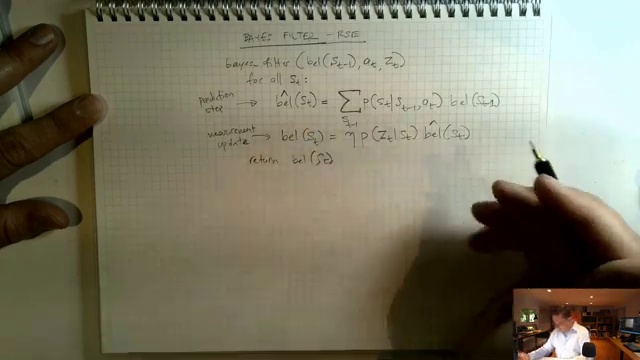 BAYES FILTER - RSE
bayes_filter (bel(s_{t-1}), a_t, z_t)
for all s_t:
prediction step → b\hat{e}l(s_t) = ∑_{s_{t-1}} p(s_t|s_{t-1}, a_t) bel(s_{t-1})
measurement update → bel(s_t) = η p(z_t|s_t) b\hat{e}l(s_t)
return bel(s_t)